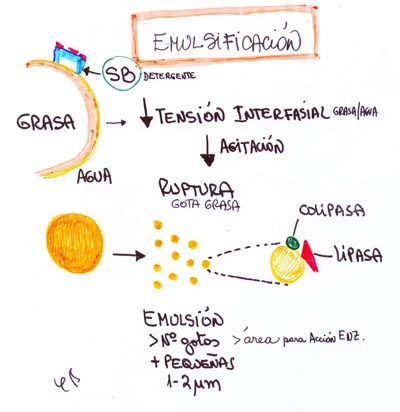 EMULSIFICACIÓN
SB DETERGENTE
GRASA
↓ TENSIÓN INTERFASIAL GRASA/AGUA
↓ AGITACIÓN
AGUA
RUPTURA
GOTA GRASA
COLIPASA
LIPASA
EMULSIÓN
>Nº gotas >área para Acción ENZ.
+ PEQUEÑAS
1-2 μm